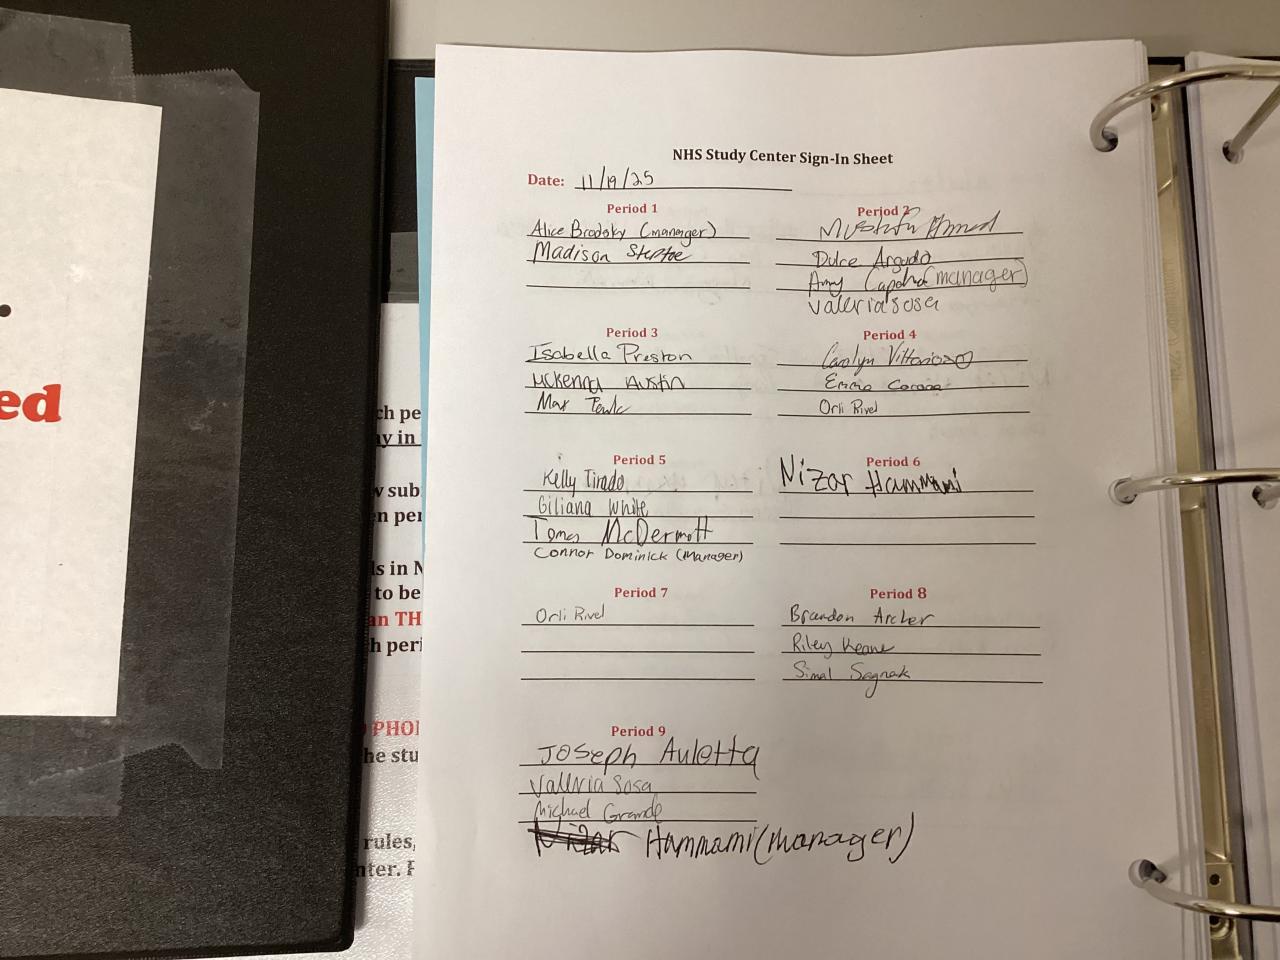 NHS Study Center Sign-In Sheet
Date: 11/19/25
Period 1
Alice Brodsky (manager)
Madison Steptoe
Period 2
Mustafa Ahmed
Dulce Argudo
Amy (manager)
Valeria Sosa
Period 3
Isabella Preston
McKenna Austin
Max
Period 4
Carolyn Vittorioso
Emma
Orli Rivel
Period 5
Kelly Tirado
Giliana White
Tomas McDermott
Connor Dominick (Manager)
Period 6
Nizar Hammami
Period 7
Orli Rivel
Period 8
Brandon Archer
Riley Keane
Simal Sagnak
Period 9
Joseph Auletta
Valeria Sosa
Michael Grande
Nizar Hammami (manager)
ed
ch pe
y in
sub
n per
ls in N
to be
an TH
h peri
PHO
he stu
rules,
nter.